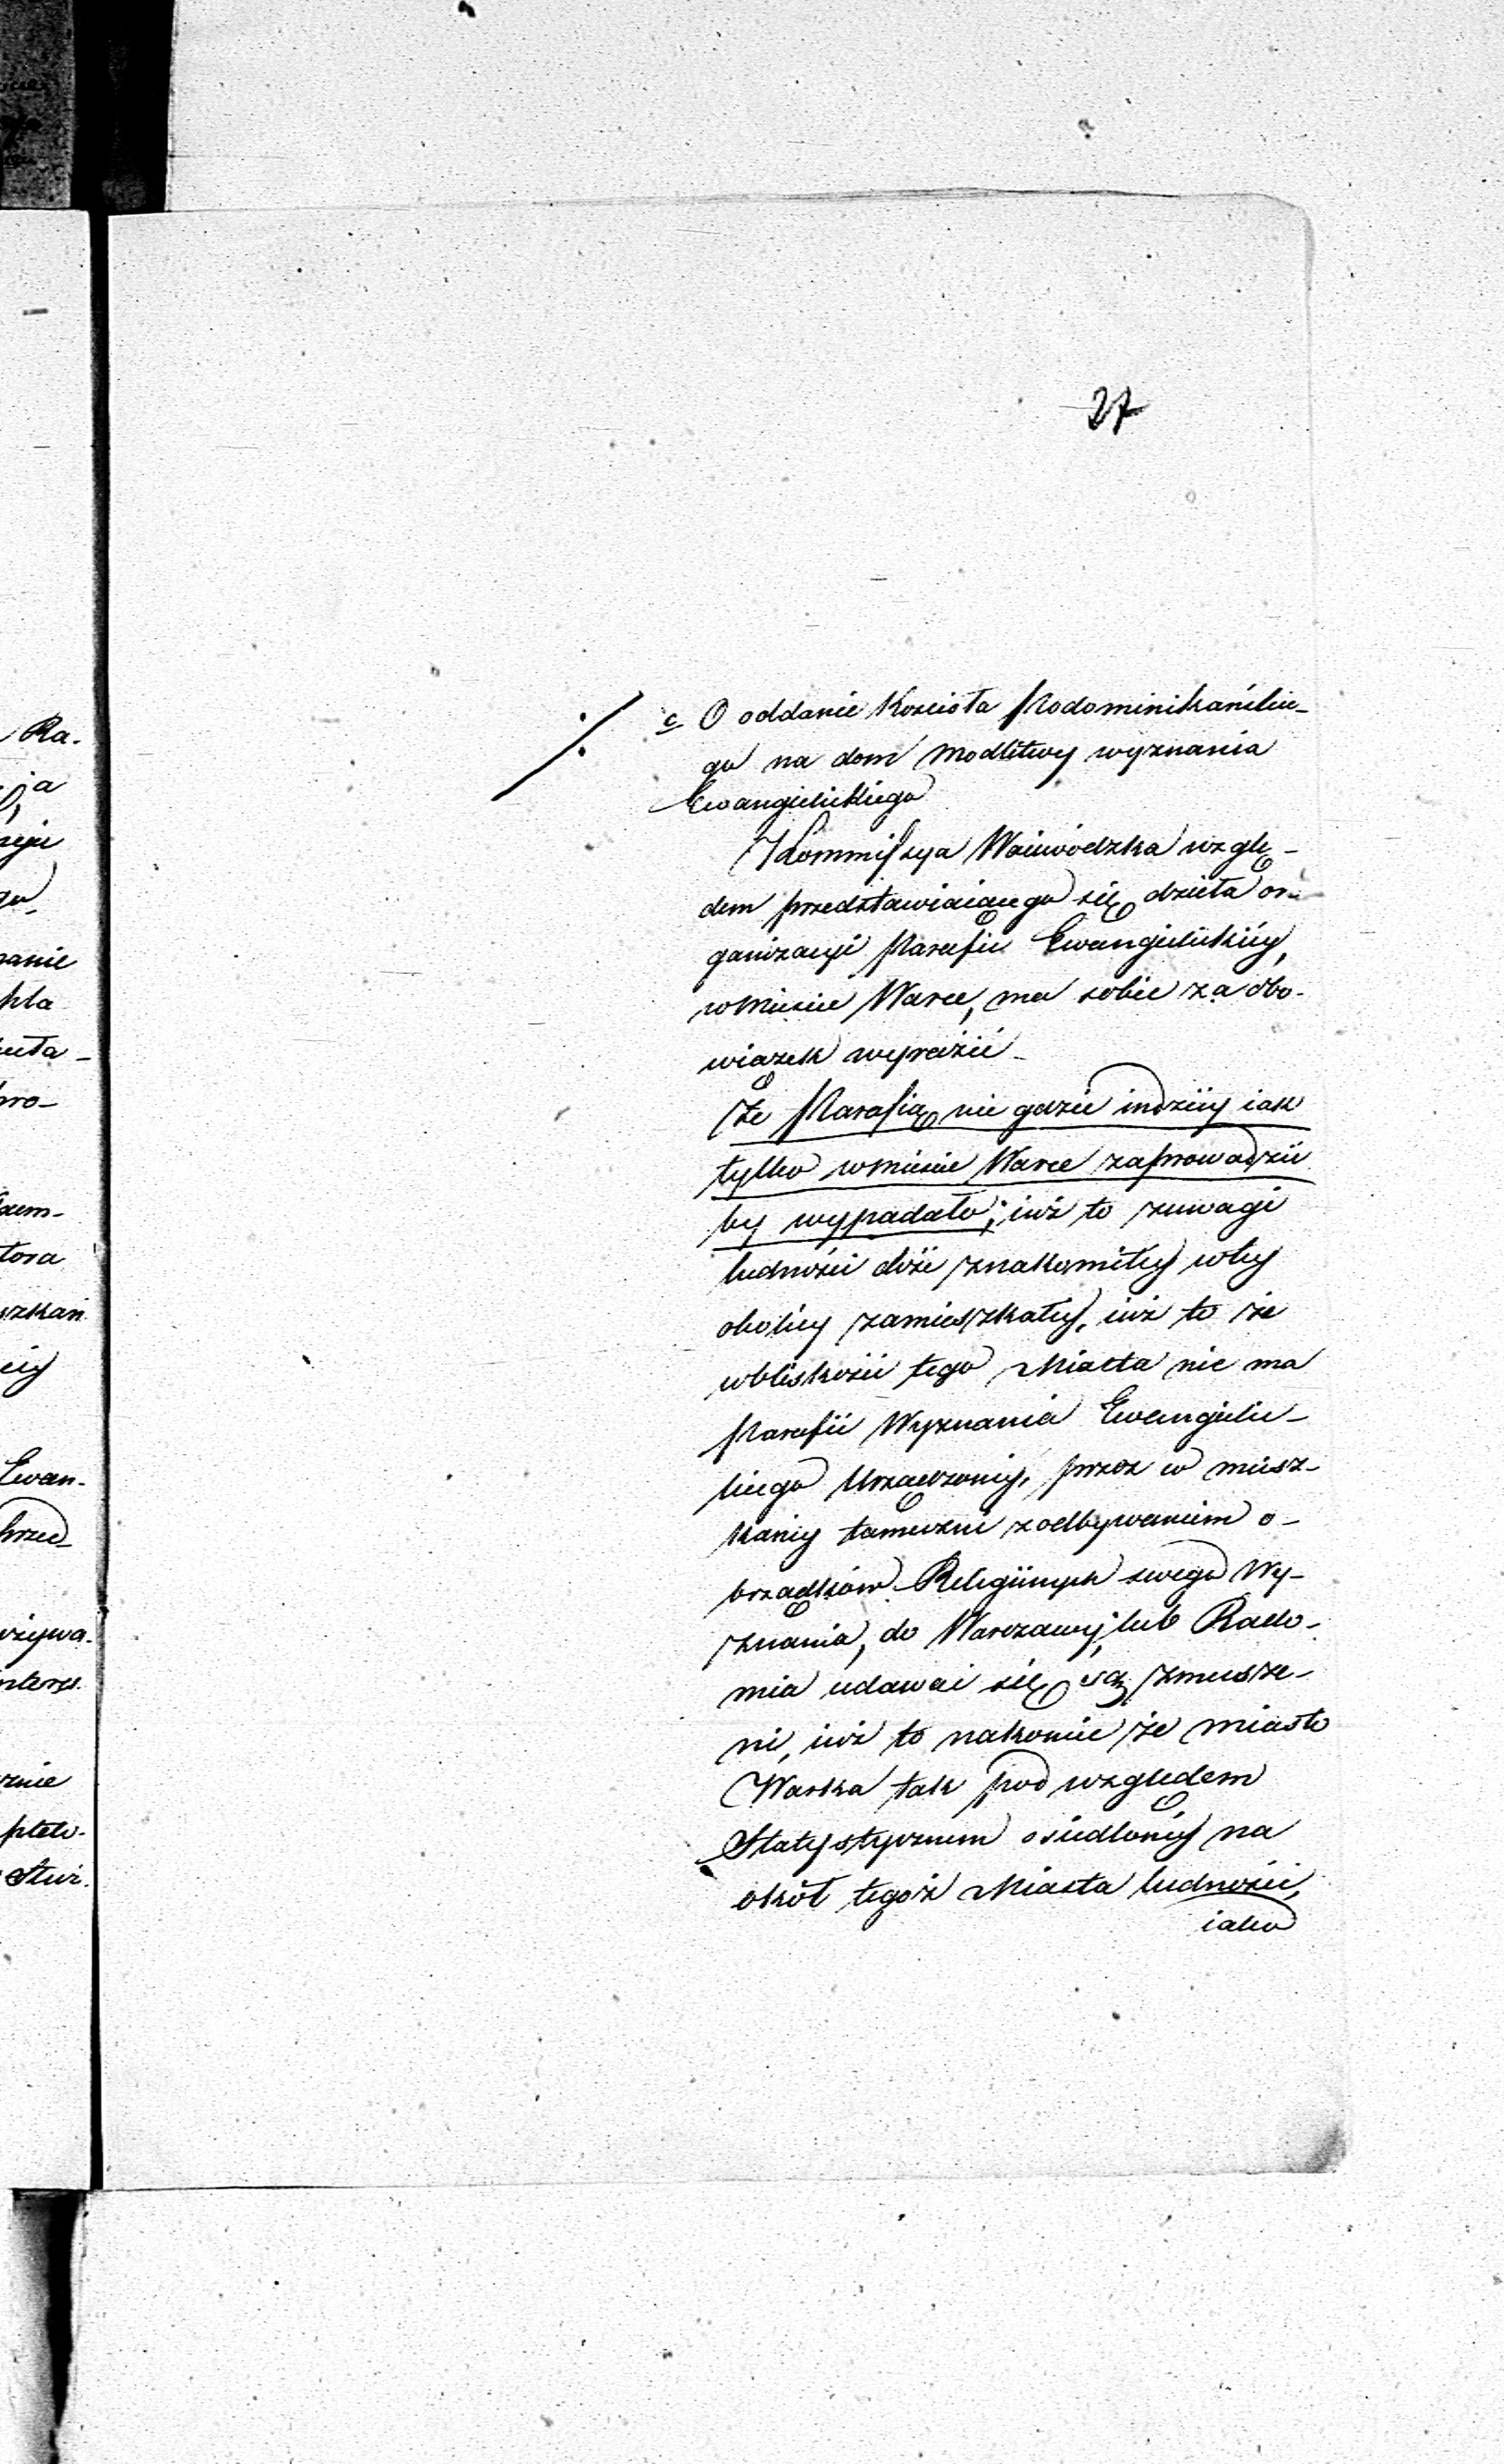 27
c O oddanie Kościoła Podominikańskie-
go na dom modlitwy wyznania
Ewangielickiego
Kommissya Woiewódzka wzglę-
dem przedstawiaiącego się dzieła or-
ganizacyi Parafii Ewangielickiéy,
w Mieście Warce, ma sobie za obo-
wiązek wyrazić
że Parafią nie gdzie indziéy iak
tylko w Mieście Warce zaprowadzić
by wypadało; iuż to z uwagi
ludności dość znakomitéy w téy
okolicy zamieszkałéy, iuż to że
w bliskości tego Miasta nie ma
Parafii Wyznania Ewangielic-
kiego Urządzonéy, przez co miesz-
kańcy tameczni z odbywaniem o-
brządków Religiinych swego Wy-
znania, do Warszawy, lub Rado-
mia udawać się są zmusze-
ni, iuż to nakoniec że miasto
Warka tak pod względem
Statystycznym osiedlonéy na
okół tegoż Miasta ludności,
iako
Ra.
ja
anie
kła
tora
Ewan-
przed